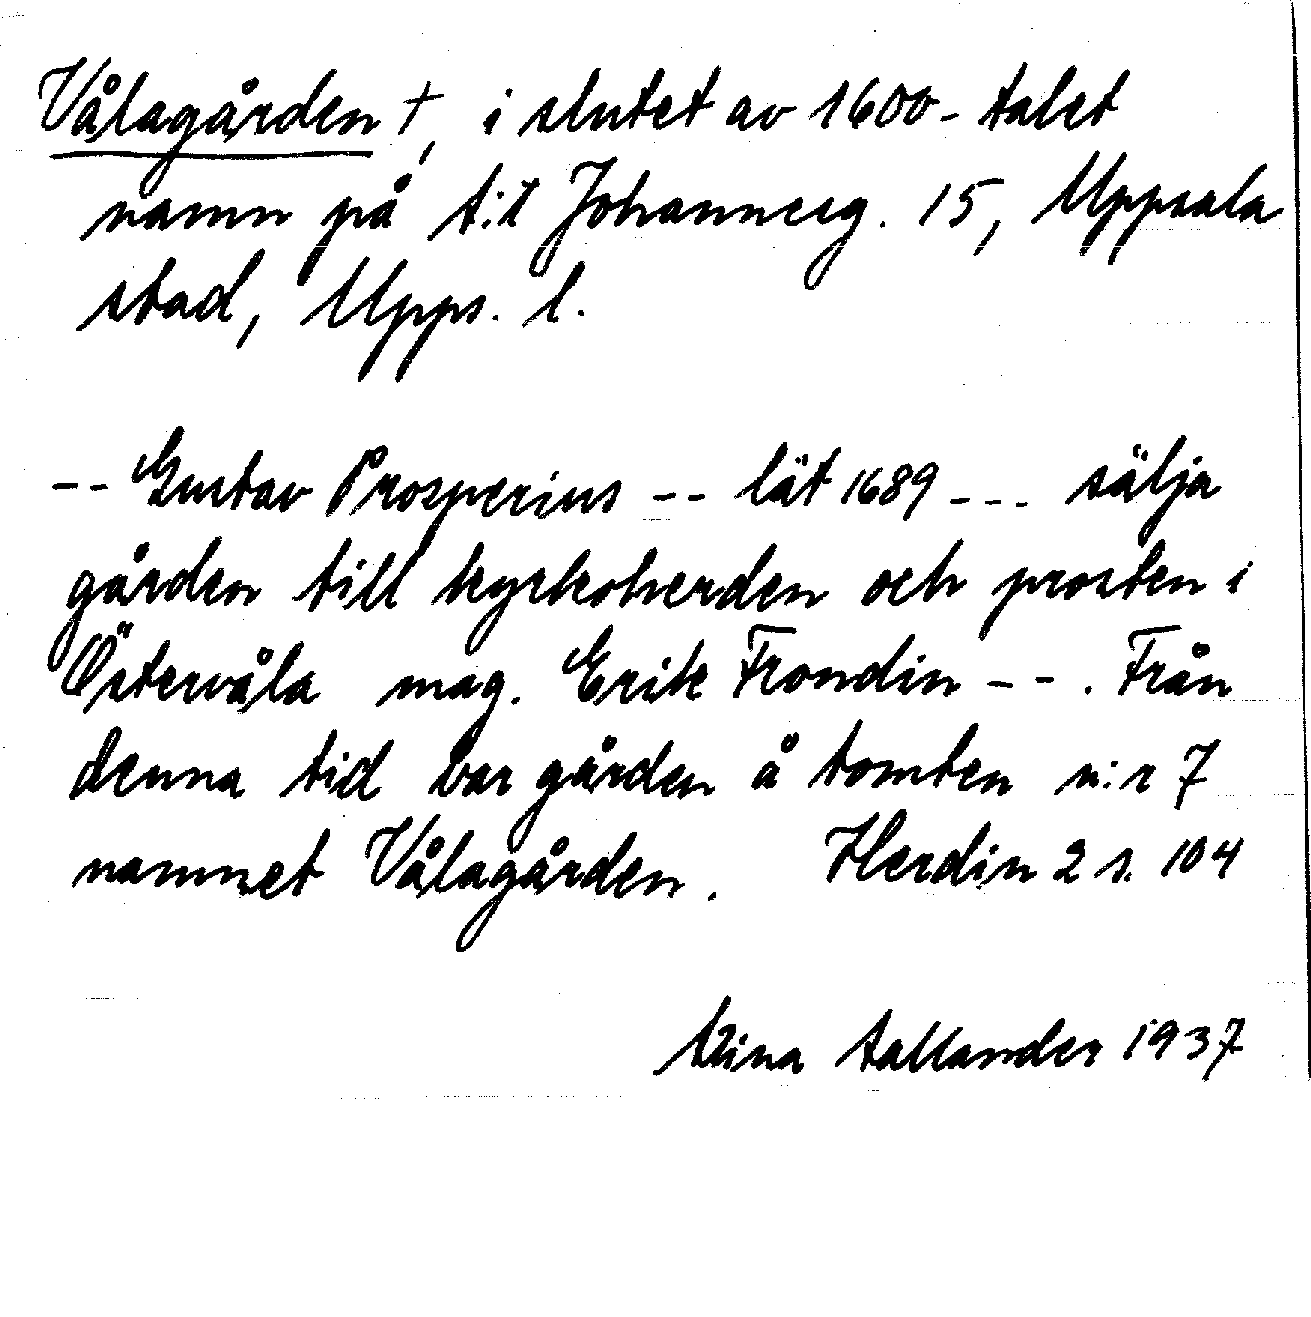 Vålagården †, i slutet av 1600-talet
namn på t:t Johannesg. 15, Uppsala
stad, Upps. l.
-- Gustav Prosperius -- lät 1689 --- sälja
gården till kyrkoherden och prosten i
Östervåla mag. Erik Frondin --. Från
denna tid bar gården å tomten n:r 7
namnet Vålagården. Herdin 2 s. 104
Stina Tallander 1937